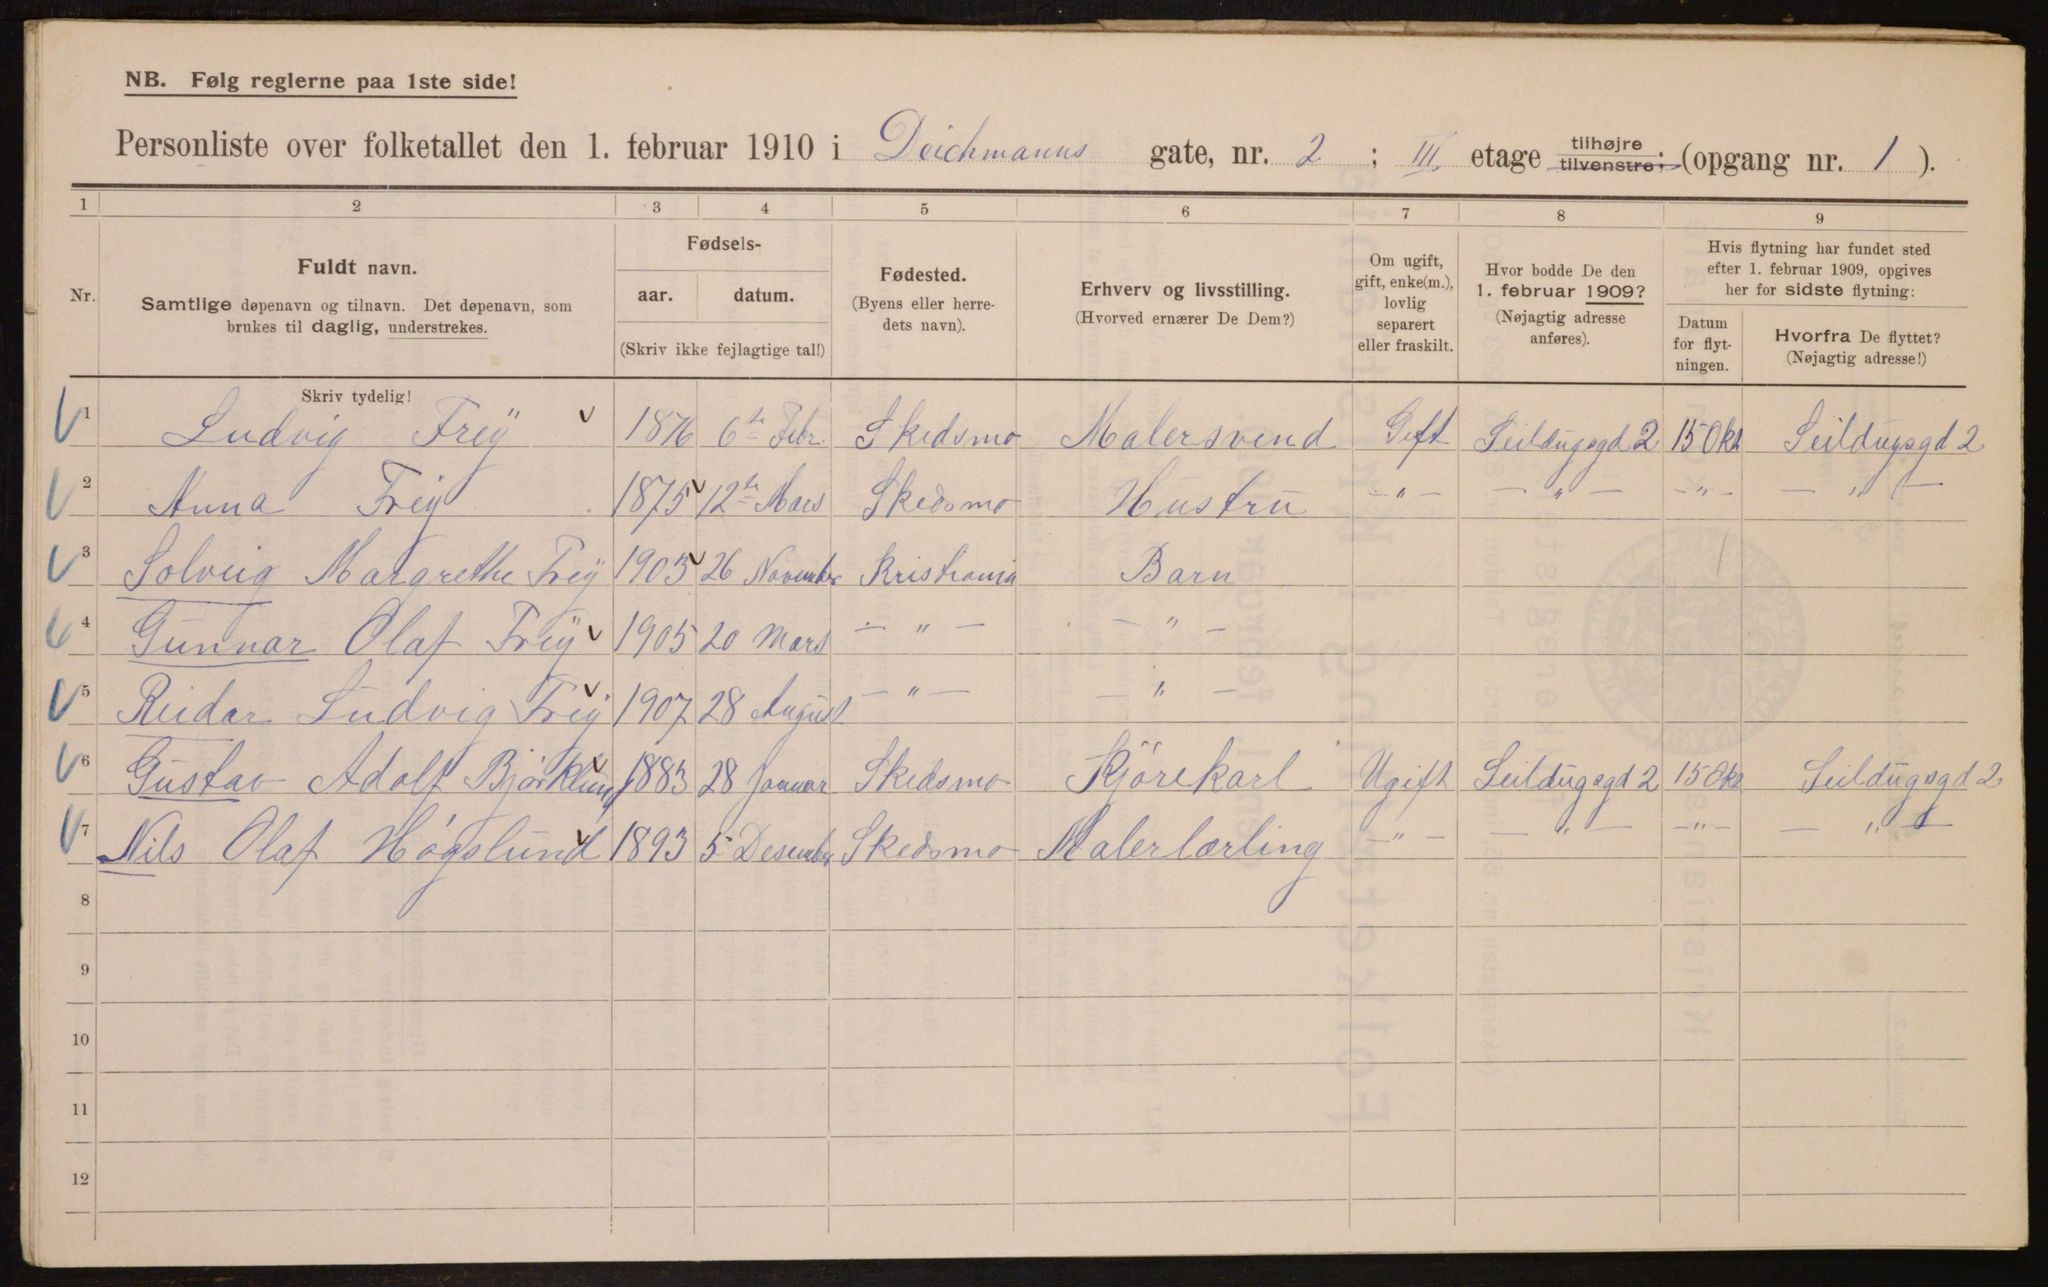 NB. Følg reglerne paa 1ste side!
Personliste over folketallet den 1. februar 1910 i Deichmanns gate, nr. 2 ; III etage tilhøjre tilvenstre; (opgang nr. 1 ).
1 2 3 4 5 6 7 8 9
Nr.
Fuldt navn.
Samtlige døpenavn og tilnavn. Det døpenavn, som
brukes til daglig, understrekes.
Fødsels-
aar. datum.
(Skriv ikke fejlagtige tal!)
Fødested.
(Byens eller herre-
dets navn).
Erhverv og livsstilling.
(Hvorved ernærer De Dem?)
Om ugift,
gift, enke(m.),
lovlig
separert
eller fraskilt.
Hvor bodde De den
1. februar 1909?
(Nøjagtig adresse
anføres).
Hvis flytning har fundet sted
efter 1. februar 1909, opgives
her for sidste flytning:
Datum
for flyt-
ningen.
Hvorfra De flyttet?
(Nøjagtig adresse!)
Skriv tydelig!
1 Ludvig Freÿ 1876 6te Febr. Skedsmo Malersvend Gift Seildugsgd 2 15 Okt Seildugsgd 2
2 Anna Freÿ 1875 12te Mars Skedsmo Hustru -"- -"- -"- -"-
3 Solveig Margrethe Freÿ 1903 26 November Kristiania Barn
4 Gunnar Olaf Freÿ 1905 20 Mars -"- -"-
5 Reidar Ludvig Freÿ 1907 28 August -"- -"-
6 Gustav Adolf Björklund 1883 28 Januar Skedsmo Kjörekarl Ugift Seildugsgd 2 15 Okt Seildugsgd 2
7 Nils Olaf Högslund 1893 5 Desember Skedsmo Malerlærling -"- -"- -"- -"-
8
9
10
11
12